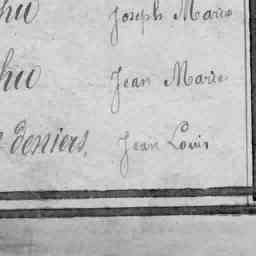 hu Joseph Marie
hu Jean Marie
deniers, Jean Louis